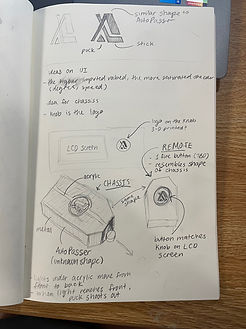 similar shape to
AutoPasser
puck
stick
ideas on UI
- the higher inputed valued, the more saturated the color
(degrees, speed)
idea for chassis
- knob is the logo
logo on the knob
3-D printed?
LCD screen
REMOTE
- 1 fire button (180)
- resembles shape
of chassis
acrylic
CHASSIS
same
shape
metal
AutoPasser
(unknown shape)
button matches
knob on LCD
screen
- lights under acrylic move from
front to back
- when light reaches front,
puck shoots out